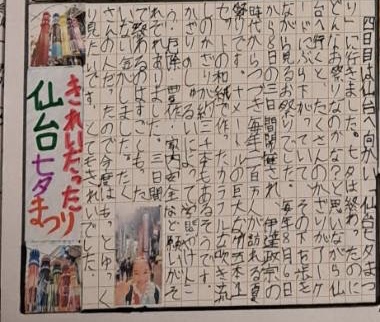 四日目は仙台へ向かい「仙台七夕まつ
り」に行きました。七夕は終わったのに
どんなお祭りなのかな?と思いながら仙
台へ行くと、たくさんのかざりがアーケ
ードにぶら下がっていて、その下を歩き
ながら見るお祭りでした。毎年8月6日
から8日の三日間開催され、伊達政宗の
時代からつづき毎年二百万人が訪れる夏
祭りです。十メートルの巨大な竹五本一
セットの和紙で作ったカラフルな吹き流
しのかざりが約三千本もあるそうです。
かざりのしゅるいによって学問やけんこ
う、厄除、豊作、家内安全など願いがそ
れぞれありました。三日間
で終わるのはすごくもった
いない気がしました。たく
さんの人だったので今度はもっとゆっく
り見たいです。とてもきれいでした。
きれいだったり
仙台七夕まつり